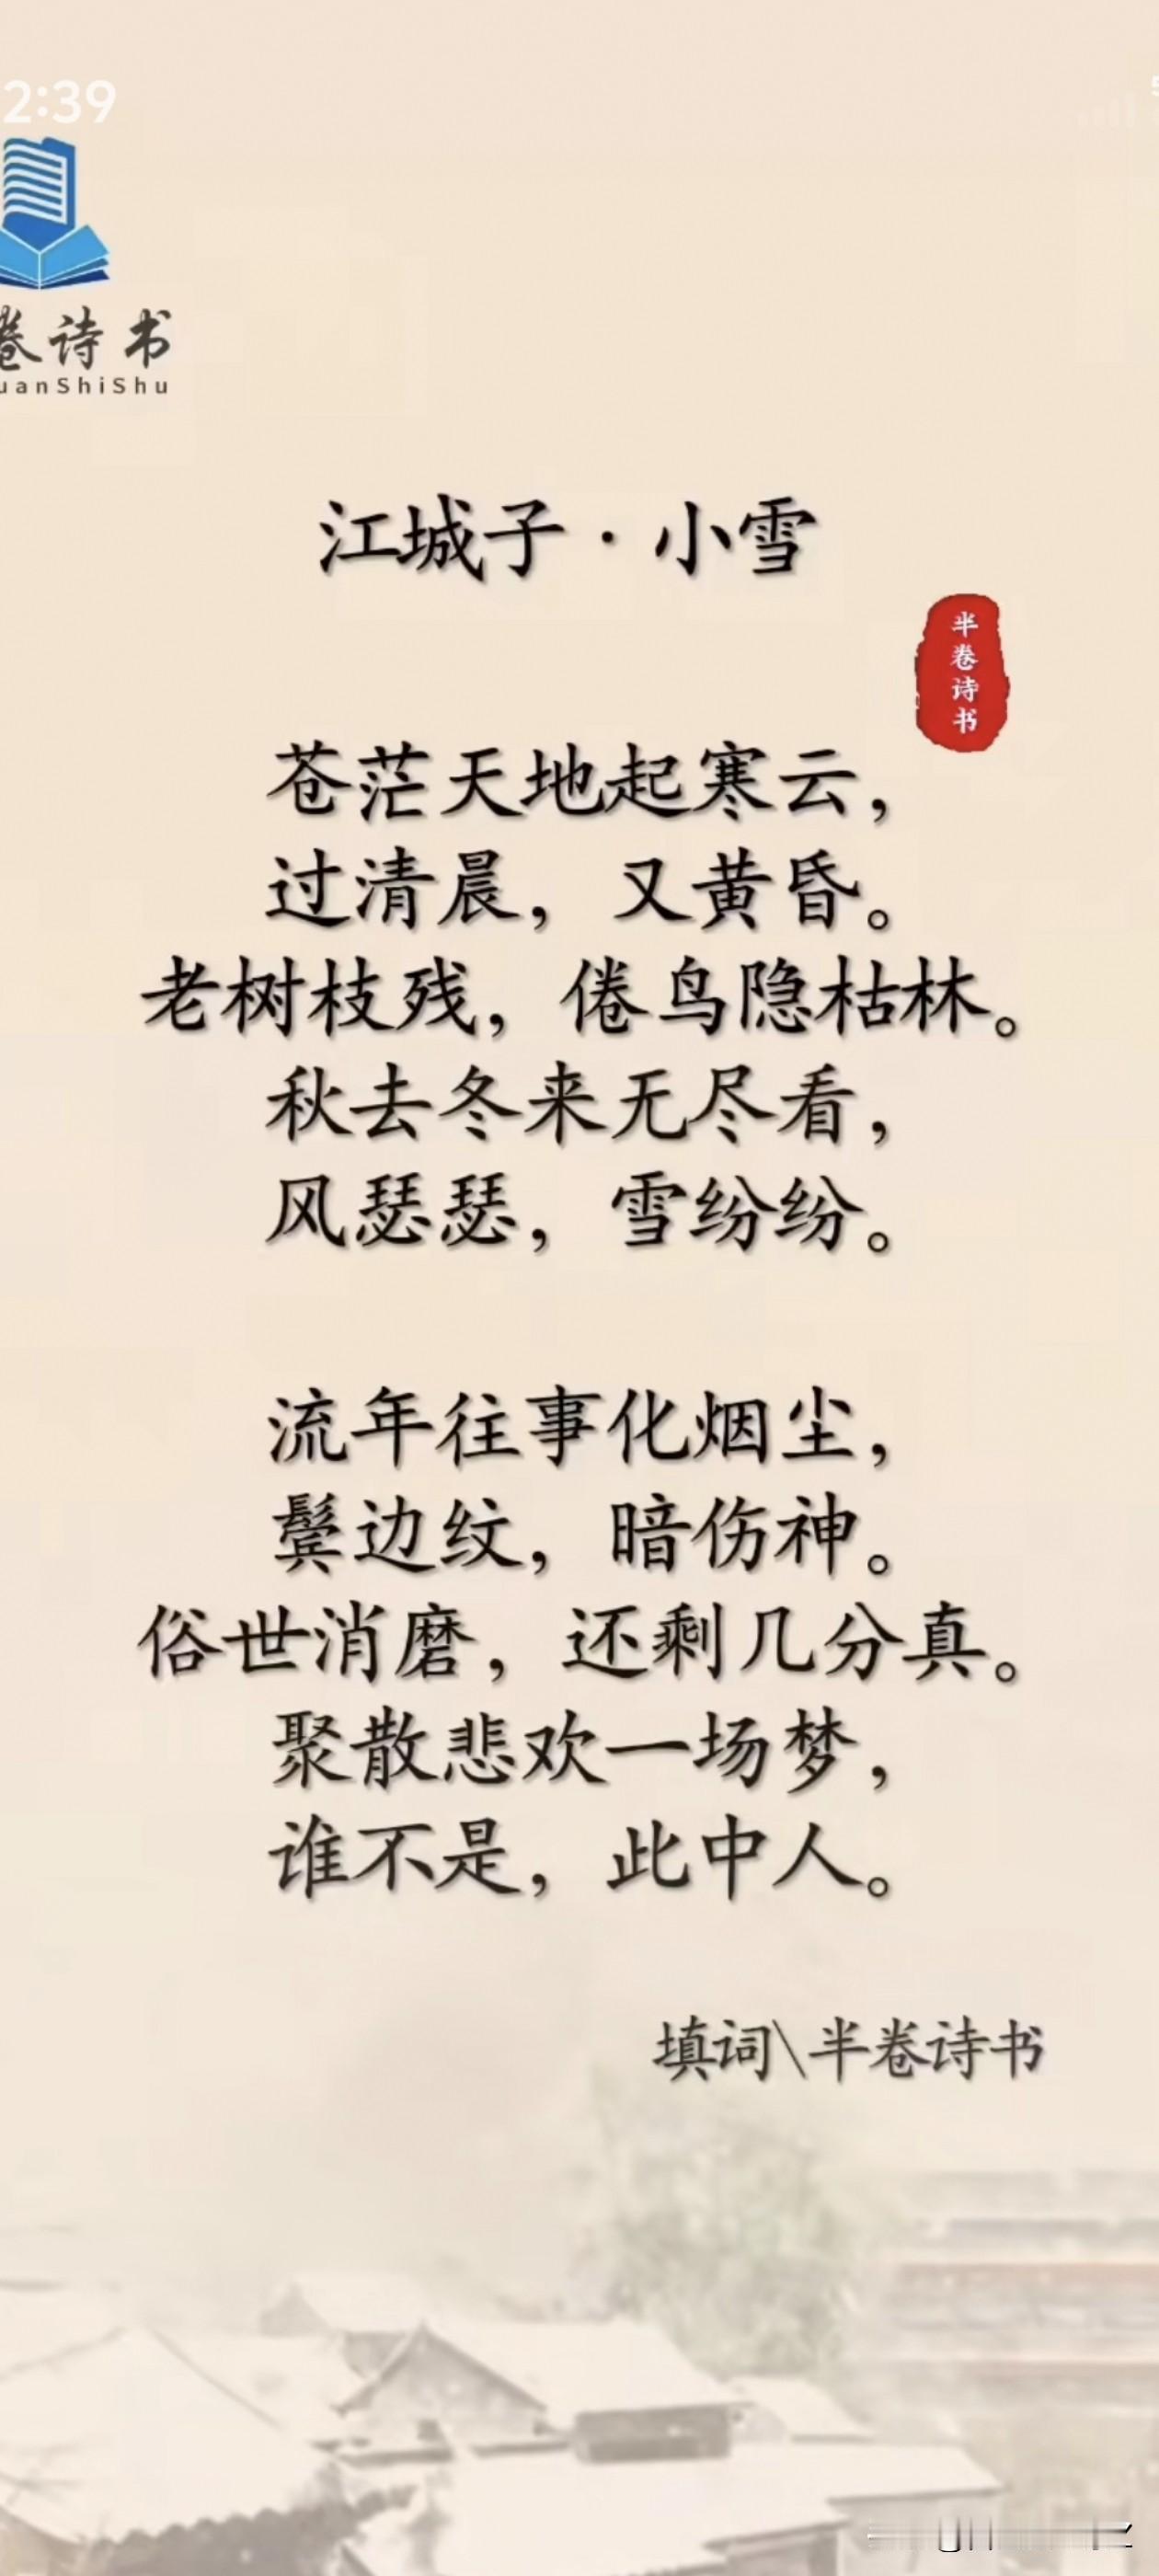 2:39
卷诗书
uanShiShu
江城子·小雪
半卷诗书
苍茫天地起寒云，
过清晨，又黄昏。
老树枝残，倦鸟隐枯林。
秋去冬来无尽看，
风瑟瑟，雪纷纷。
流年往事化烟尘，
鬓边纹，暗伤神。
俗世消磨，还剩几分真。
聚散悲欢一场梦，
谁不是，此中人。
填词\半卷诗书